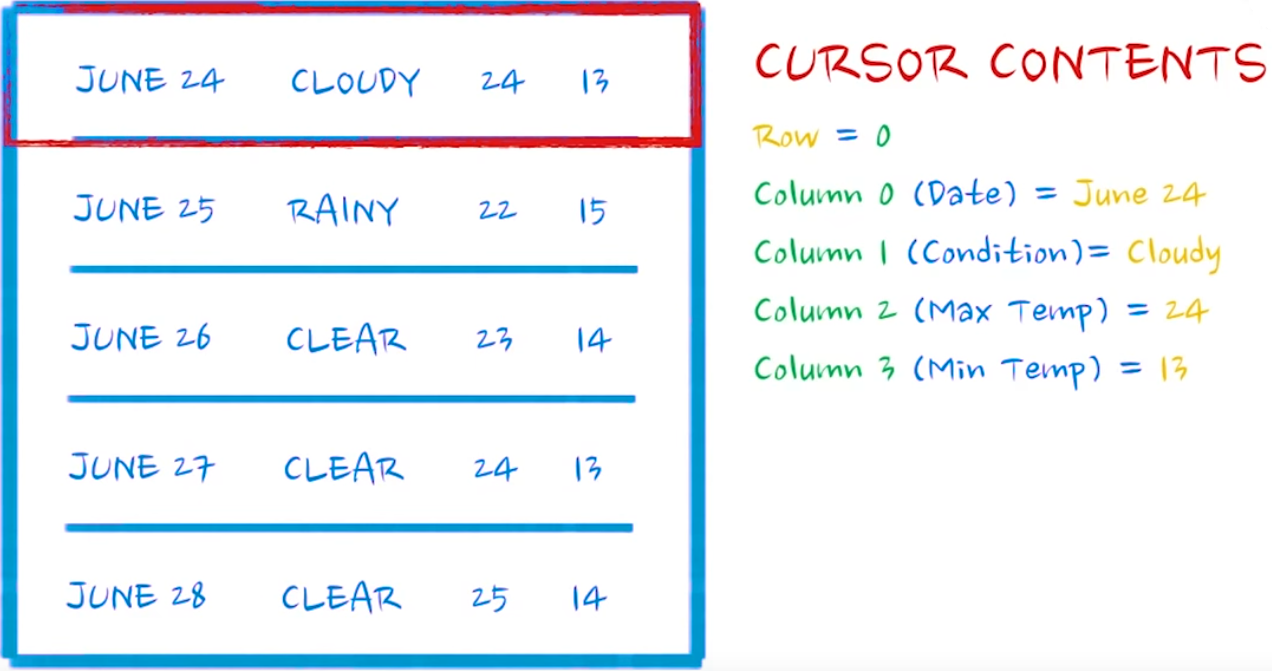 JUNE 24 CLOUDY 24 13
JUNE 25 RAINY 22 15
JUNE 26 CLEAR 23 14
JUNE 27 CLEAR 24 13
JUNE 28 CLEAR 25 14
CURSOR CONTENTS
Row = 0
Column 0 (Date) = June 24
Column 1 (Condition)= Cloudy
Column 2 (Max Temp) = 24
Column 3 (Min Temp) = 13